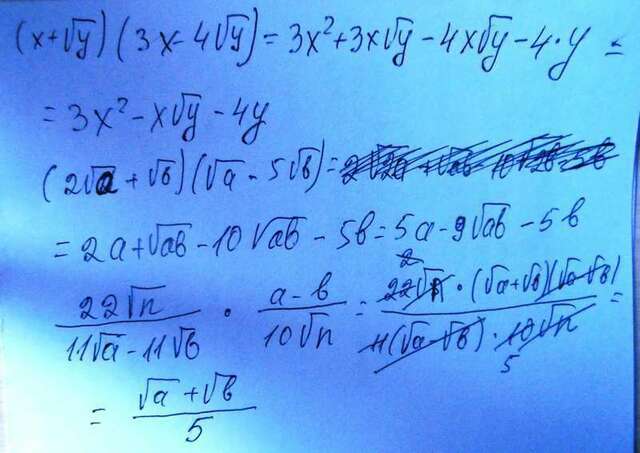 (x+√y)(3x-4√y)=3x²+3x√y-4x√y-4·y=
=3x²-x√y-4y
(2√a+√b)(√a-5√b)=
=2a+√ab-10√ab-5b=5a-9√ab-5b
22√n/(11√a-11√b) · (a-b)/(10√n) = (2 22√n·(√a+√b)(√a-√b))/(11(√a-√b)·10√n 5) =
= (√a+√b)/5